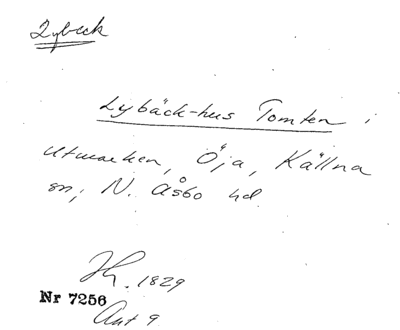 Lybeck
Lybäck-hus Tomten i
utmarken, Öja, Källna
sn; N. Åsbo hd
1829
Nr 7256
Akt 9